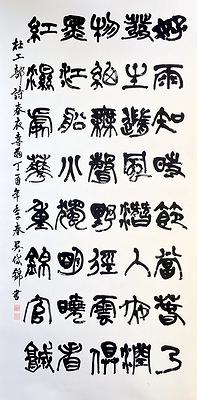 好雨知時節當春乃
發生隨風潛入夜潤
物細無聲野徑雲俱
黑江船火獨明曉看
紅濕處華重錦官城
杜工部詩春夜喜雨丁酉年季春吳俊錦書